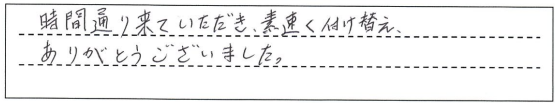 時間通り来ていただき、素速く付け替え、
ありがとうございました。